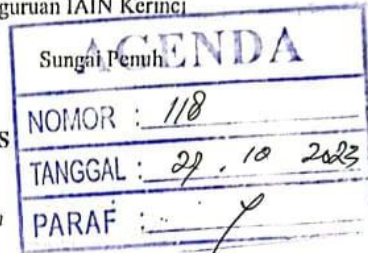 guruan IAIN Kerinci
Sungai Penuh
AGENDA
S
NOMOR : 118
TANGGAL : . 10 2023
PARAF :